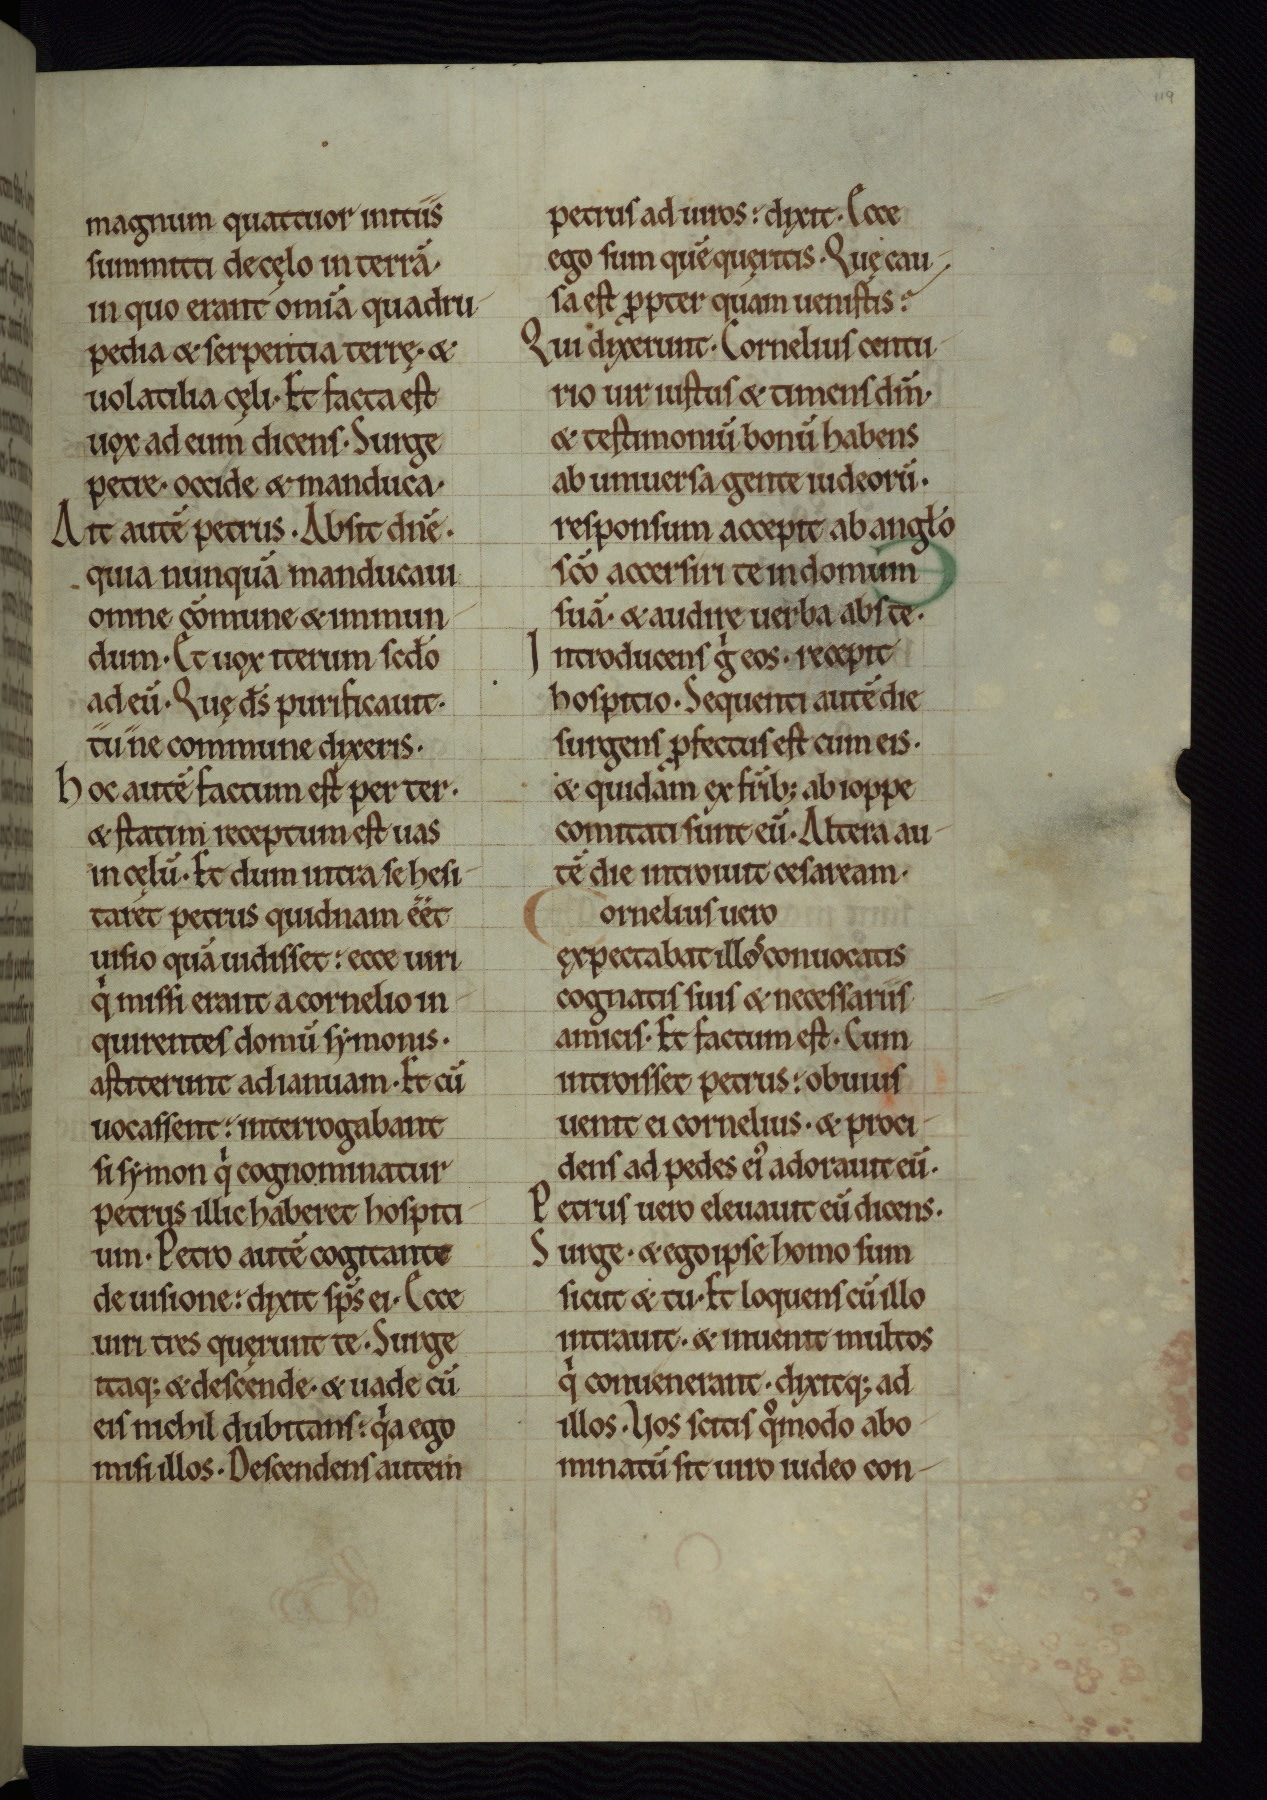 magnum quattuor initiis
summitti de cęlo in terrā·
in quo erant om̄ia quadru-
pedia & serpentia terrę· &
uolatilia cęli· Et facta est
uox ad eum dicens· Surge
petre· occide & manduca·
Ait autē petrus· Absit dn̄e·
quia nunquā manducaui
omne cōmune & inmun-
dum· Et uox iterum scd̄o
ad eū· Quę ds̄ purificauit·
tu ne commune dixeris·
hoc autē factum est per ter·
& statim receptum est uas
in cęlū· Et dum intra se hesi-
taret petrus quidnam eēt
uisio quā uidisset: ecce uiri
qi missi erant a cornelio in-
quirentes domū symonis·
astiterunt ad ianuam· Et cū
uocassent: interrogabant
si symon qi cognominatur
petrus illic haberet hospiti-
um· Petro autē cogitante
de uisione: dixit sps̄ ei· Ecce
uiri tres quęrunt te· Surge
itaq; & descende· & uade cū
eis nichil dubitans: qia ego
misi illos· Descendens autem
petrus ad uiros: dixit· Ecce
ego sum quē quęritis· Quę cau-
sa est ꝓpter quam uenistis?
Qui dixerunt· Cornelius centu-
rio uir iustus & timens dm̄·
& testimoniū bonū habens
ab uniuersa gente iudeorū·
responsum accepit ab angło
scō accersiri te in domum
suā· & audire uerba abs te·
Introducens gi eos· recepit
hospitio· Sequenti autē die
surgens ꝓfectus est cum eis·
& quidam ex fr̄ib; ab ioppe
comitati sunt eū· Altera au-
tē die introiuit cesaream·
Cornelius uero
expectabat illos conuocatis
cognatis suis & necessariis
amicis· Et factum est· Cum
introisset petrus: obuius
uenit ei cornelius· & proci-
dens ad pedes eiꝰ adorauit eū·
Petrus uero eleuauit eū dicens·
Surge· & ego ipse homo sum
sicut & tu· Et loquens cū illo
intrauit· & inuenit multos
qi conuenerant· dixitq; ad
illos· Vos scitis qomodo abo-
minatū sit uiro iudeo con-
119